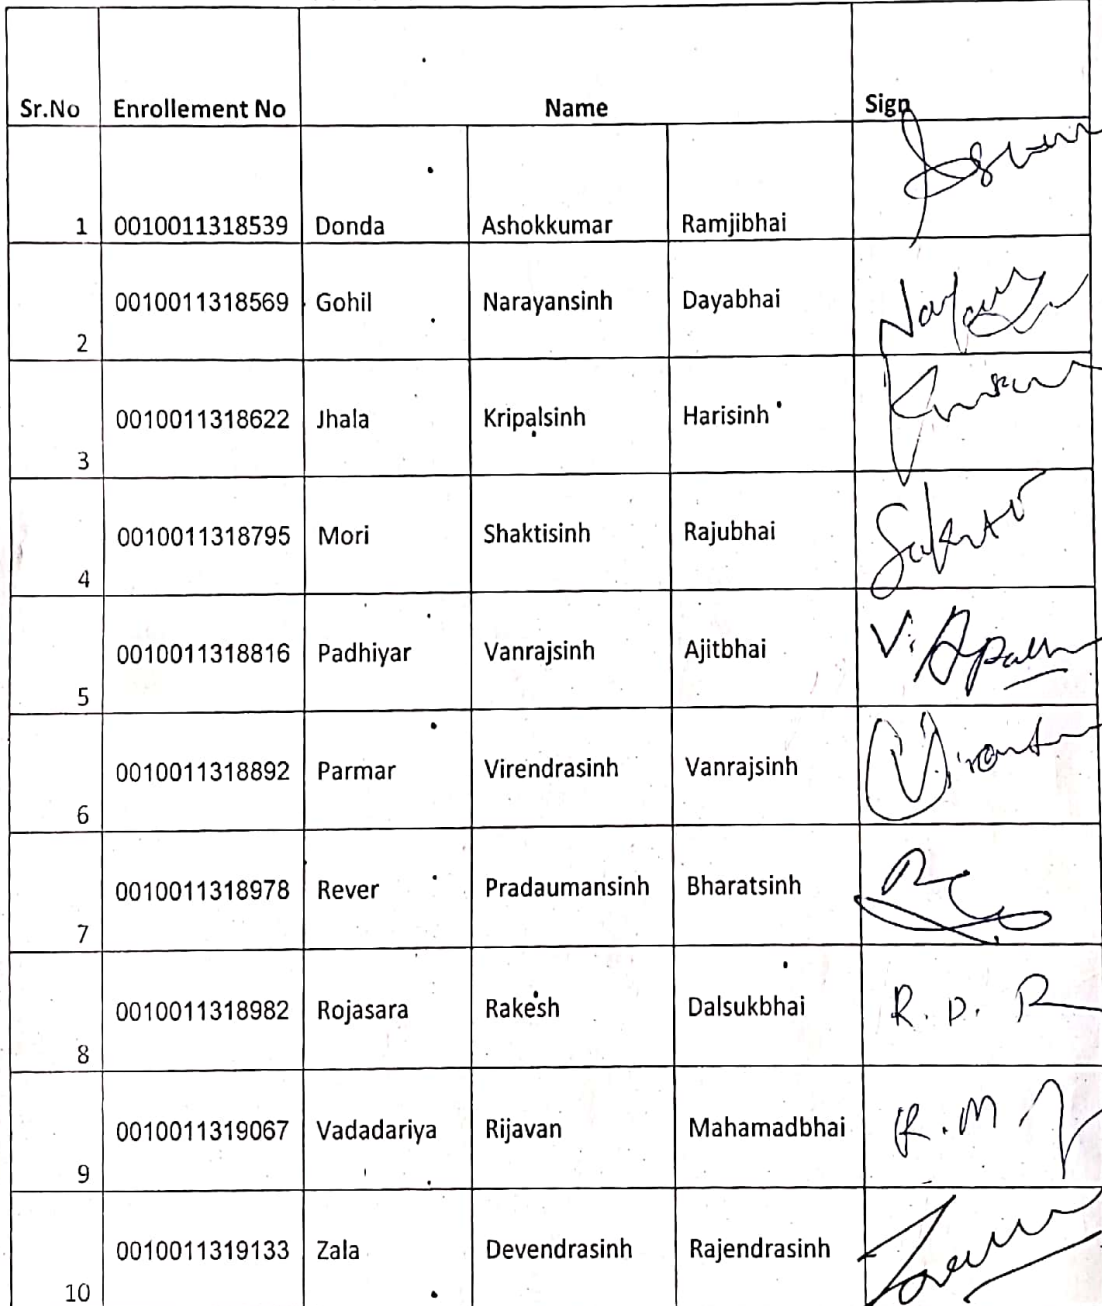 Sr.No Enrollement No Name Sign
1 0010011318539 Donda Ashokkumar Ramjibhai
2 0010011318569 Gohil Narayansinh Dayabhai
3 0010011318622 Jhala Kripalsinh Harisinh
4 0010011318795 Mori Shaktisinh Rajubhai
5 0010011318816 Padhiyar Vanrajsinh Ajitbhai
6 0010011318892 Parmar Virendrasinh Vanrajsinh
7 0010011318978 Rever Pradaumansinh Bharatsinh
8 0010011318982 Rojasara Rakesh Dalsukbhai R. D. R
9 0010011319067 Vadadariya Rijavan Mahamadbhai R. M
10 0010011319133 Zala Devendrasinh Rajendrasinh